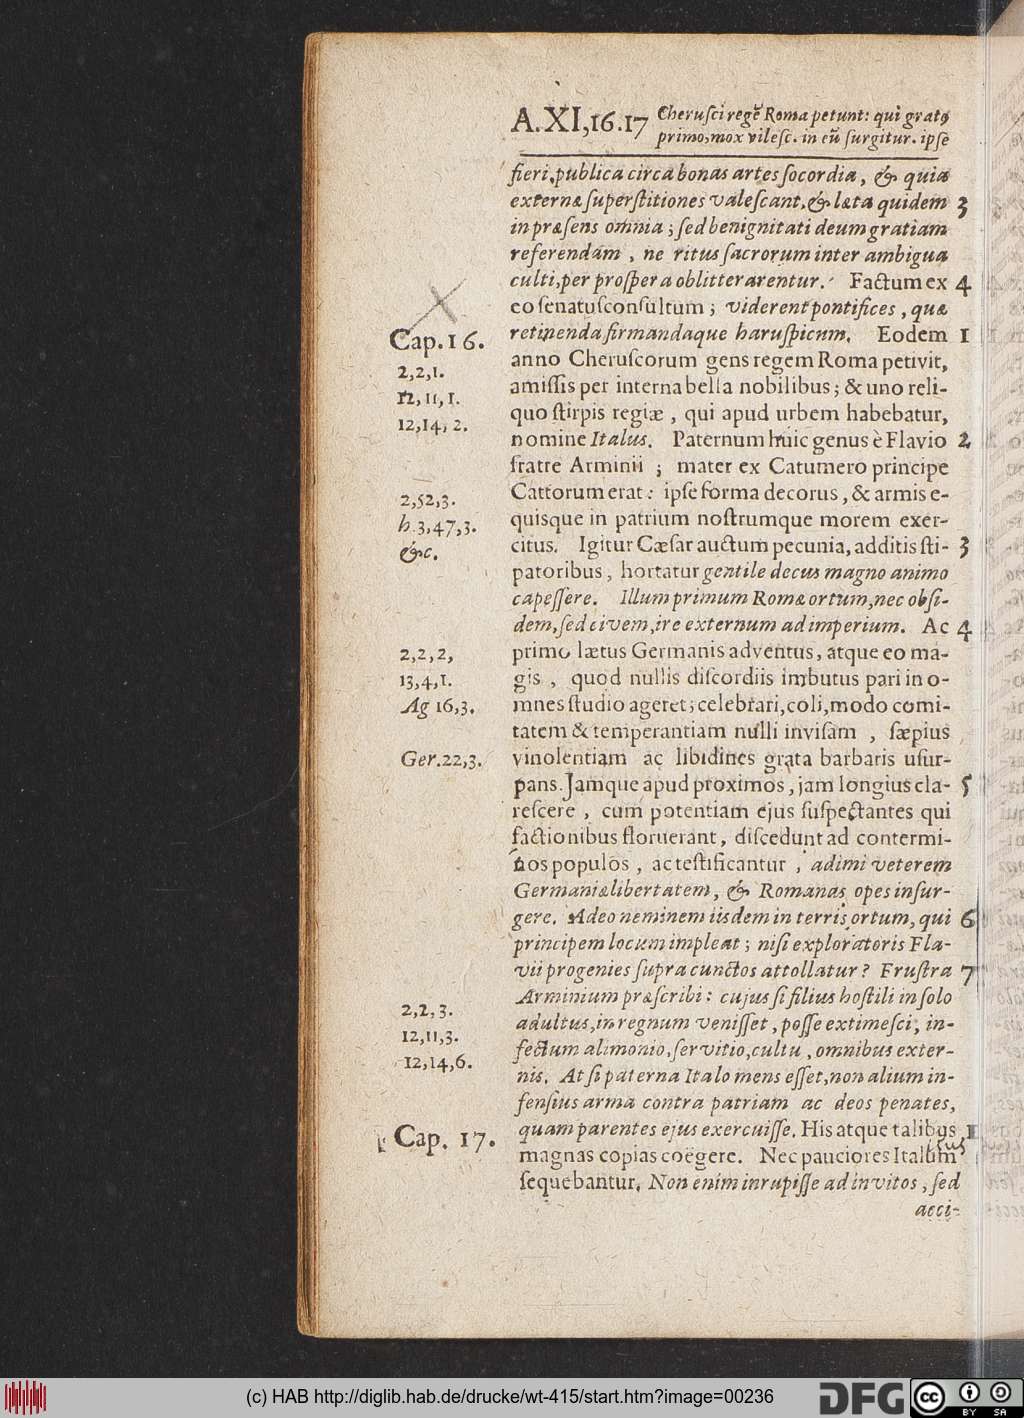 A.XI,16.17 Cheruſci regē Roma petunt: qui grato
primo, mox vileſc. in eū ſurgitur. ipſe
fieri, publica circa bonas artes ſocordia, & quia
externæ ſuperſtitiones valeſcant, & læta quidem 3
in præſens omnia; ſed benignitati deum gratiam
referendam, ne ritus ſacrorum inter ambigua
culti, per proſpera oblitterarentur. Factum ex 4
eo ſenatuſconſultum; viderent pontifices, quæ
Cap. 16. retinenda firmandaque haruſpicum. Eodem 1
anno Cheruſcorum gens regem Roma petivit,
2,2,1. amiſſis per interna bella nobilibus; & uno reli-
12,11,1. quo ſtirpis regiæ, qui apud urbem habebatur,
12,14,2. nomine Italus. Paternum huic genus è Flavio 2
fratre Arminii; mater ex Catumero principe
2,52,3. Cattorum erat: ipſe forma decorus, & armis e-
h.3,47,3. quisque in patrium noſtrumque morem exer-
&c. citus. Igitur Cæſar auctum pecunia, additis ſti- 3
patoribus, hortatur gentile decus magno animo
capeſſere. Illum primum Romæ ortum, nec obſi-
dem, ſed civem, ire externum ad imperium. Ac 4
2,2,2, primo lætus Germanis adventus, atque eo ma-
13,4,1. gis, quod nullis diſcordiis imbutus pari in o-
Ag 16,3. mnes ſtudio ageret; celebrari, coli, modo comi-
tatem & temperantiam nulli inviſam, ſæpius
Ger.22,3. vinolentiam ac libidines grata barbaris uſur-
pans. Jamque apud proximos, jam longius cla- 5
reſcere, cum potentiam ejus ſuſpectantes qui
factionibus floruerant, diſcedunt ad contermi-
nos populos, ac teſtificantur, adimi veterem
Germaniæ libertatem, & Romanas opes inſur-
gere. Adeo neminem iisdem in terris ortum, qui 6
principem locum impleat; niſi exploratoris Fla-
vii progenies ſupra cunctos attollatur? Fruſtra 7
Arminium præſcribi: cujus ſi filius hoſtili in ſolo
2,2,3. adultus, in regnum veniſſet, poſſe extimeſci, in-
12,11,3. fectum alimonio, ſervitio, cultu, omnibus exter-
12,14,6. nis. At ſi paterna Italo mens eſſet, non alium in-
fenſius arma contra patriam ac deos penates,
Cap. 17. quam parentes ejus exercuiſſe. His atque talibus 1
magnas copias coëgere. Nec pauciores Italum
ſequebantur. Non enim inrupiſſe ad invitos, ſed
acci-
(c) HAB http://diglib.hab.de/drucke/wt-415/start.htm?image=00236
DFG
cc BY SA